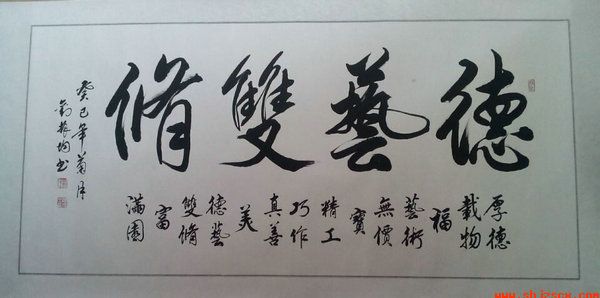 德藝雙脩
厚德
載物
福
藝術
無價
寶
精工
巧作
真善
美
德藝
雙脩
富
滿園
癸巳年菊月